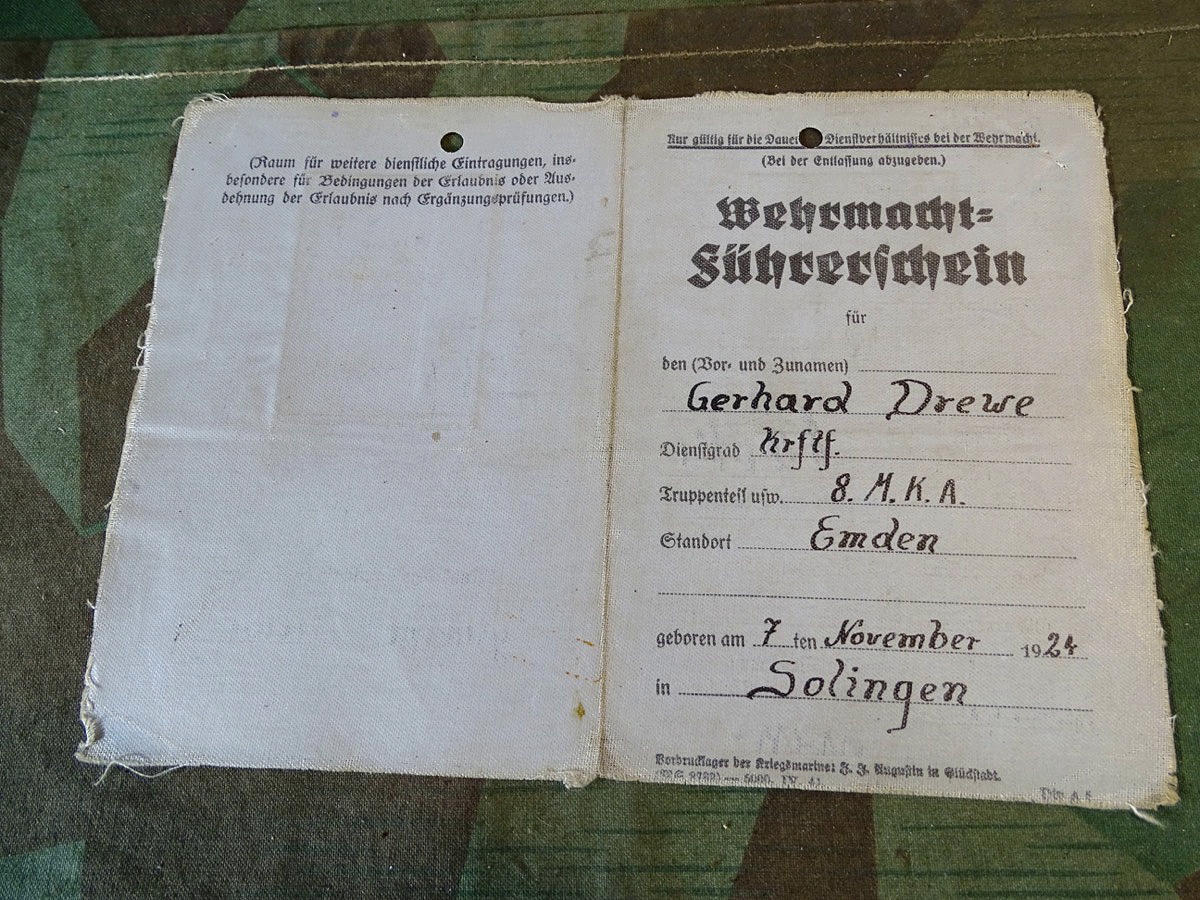 (Raum für weitere dienstliche Eintragungen, ins-
besondere für Bedingungen der Erlaubnis oder Aus-
dehnung der Erlaubnis nach Ergänzungsprüfungen.)
Nur gültig für die Daue Dienstverhältnisses bei der Wehrmacht.
(Bei der Entlassung abzugeben.)
Wehrmacht-
Führerschein
für
den (Vor- und Zunamen)
Gerhard Drewe
Dienstgrad Krftf.
Truppenteil usw. 8. M. K. A.
Standort Emden
geboren am 7 ten November 1924
in Solingen
Vordrucklager der Kriegsmarine: J. J. Augustin in Glückstadt.
5000. IV. 41.